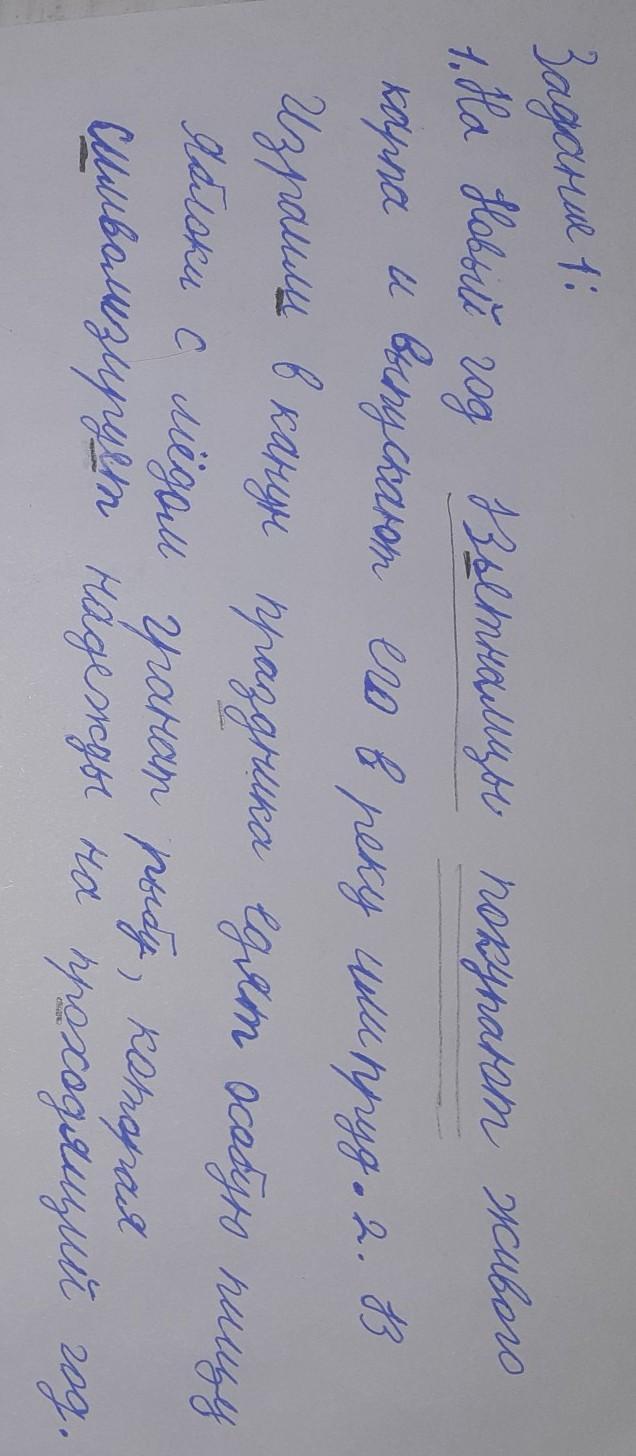 Задание 1:
1. На Новый год Вьетнамцы покупают живого
карпа и выпускают его в реку или пруд. 2. В
Израили в канун праздника едят особую пищу
Яблоки с мёдом гранат рыбу, которая
символизирует надежды на проходящий год.